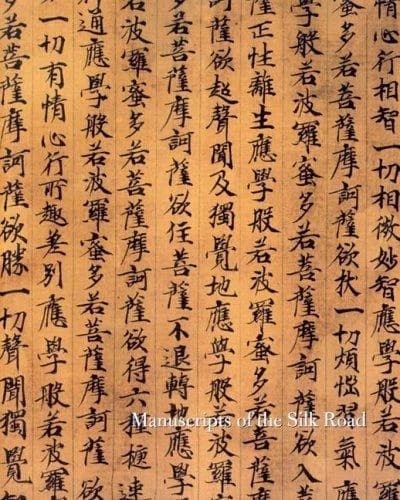 情心行相智一切相微妙智應學般若
蜜多若菩薩摩訶薩欲拔一切煩惱習氣應
學般若波羅蜜多若菩薩摩訶薩欲入菩
薩正性離生應學般若波羅蜜多若菩薩
薩欲超聲聞及獨覺地應學般若波
多若菩薩摩訶薩欲住菩薩不退轉地應學
若波羅蜜多若菩薩摩訶薩欲得六種極速
通應學般若波羅蜜多若菩薩摩訶薩
一切有情心行所趣差別應學般若波羅
若菩薩摩訶薩欲勝一切聲聞獨覺智
Manuscripts of the Silk Road